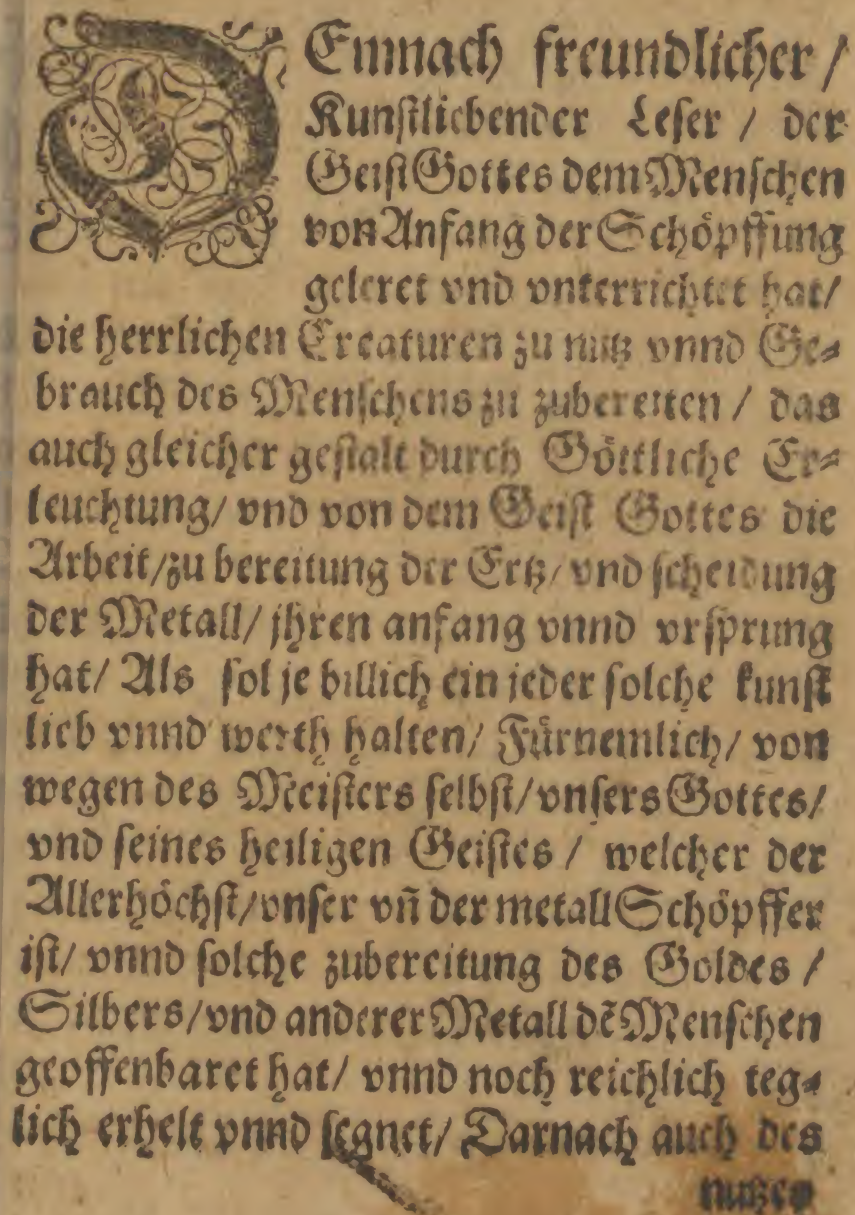 DEmnach freundlicher /
Kunstliebender Leser / der
Geist Gottes dem Menschen
von Anfang der Schöpffung
geleret vnd vnterrichtet hat/
die herrlichen Creaturen zu nutz vnnd Ge⸗
brauch des Menschens zu zubereiten / das
auch gleicher gestalt durch Göttliche Er⸗
leuchtung/ vnd von dem Geist Gottes die
Arbeit/zu bereitung der Ertz/ vnd scheidung
der Metall/ jhren anfang vnnd vrsprung
hat/ Als sol je billich ein jeder solche kunst
lieb vnnd werth halten/ Fürnemlich/ von
wegen des Meisters selbst/vnsers Gottes/
vnd seines heiligen Geistes / welcher der
Allerhöchst/vnser vñ der metall Schöpffer
ist/ vnnd solche zubereitung des Goldes /
Silbers/vnd anderer Metall dē Menschen
geoffenbaret hat/ vnnd noch reichlich teg⸗
lich erhelt vnnd segnet/ Darnach auch des
nutzes